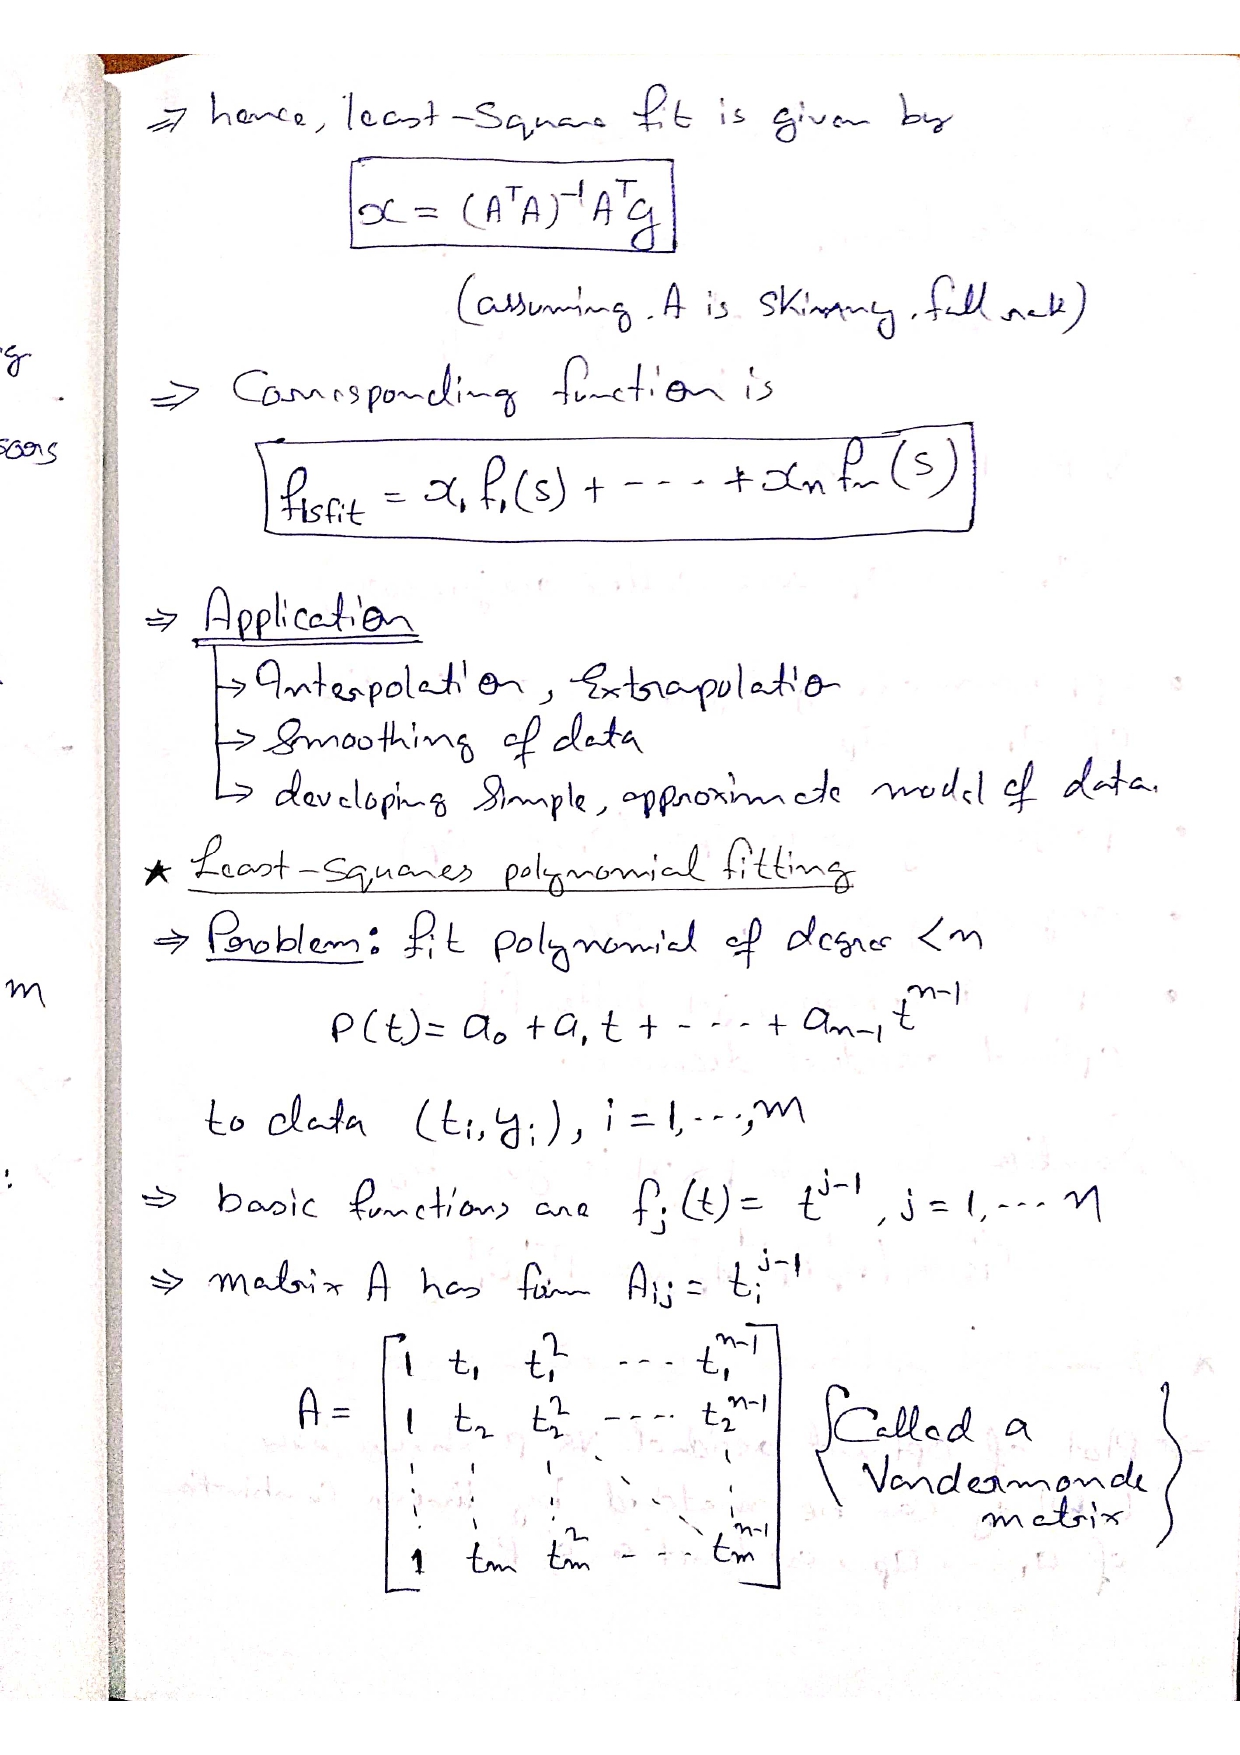 ⇒ hence, least-square fit is given by
x = (AᵀA)⁻¹Aᵀg
(assuming A is skinny, full rank)
⇒ Corresponding function is
f_lsfit = x₁f₁(s) + --- + xₙfₙ(s)
⇒ Application
→ Interpolation, Extrapolation
→ Smoothing of data
→ developing simple, approximate model of data.
★ Least-squares polynomial fitting
⇒ Problem: fit polynomial of degree <n
P(t) = a₀ + a₁t + ---- + aₙ₋₁tⁿ⁻¹
to data (tᵢ,yᵢ), i = 1,---,m
⇒ basic functions are fⱼ(t) = tʲ⁻¹, j = 1,--- n
⇒ matrix A has form Aᵢⱼ = tᵢʲ⁻¹
A = [1 t₁ t₁² --- t₁ⁿ⁻¹
1 t₂ t₂² ---- t₂ⁿ⁻¹
⋮ ⋮ ⋮ ⋱ ⋮
1 tₘ tₘ² --- tₘⁿ⁻¹]
{Called a
Vandermonde
matrix}
m